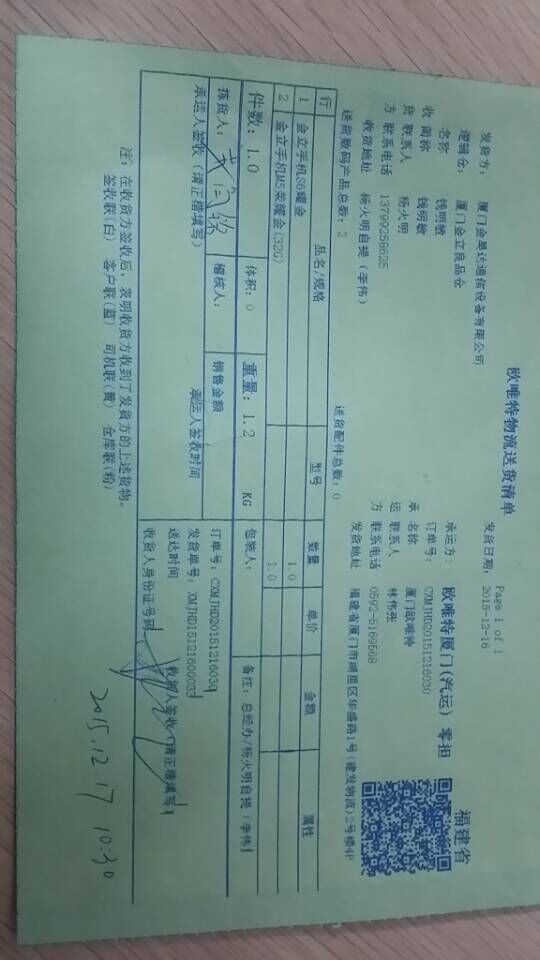 欧唯特物流送货清单
Page 1 of 1
发货日期: 2015-12-16
福建省
发货方: 厦门金星达通信设备有限公司
承运方: 欧唯特厦门(汽运) 零担
逻辑仓: 厦门金立良品仓
订单号: CXMJHD20151216030
收货方
名称 钱明敏
简称 钱明敏
联系人 杨火明
联系电话 13799258625
收货地址 杨火明自提 (李伟)
承运方
名称 厦门欧唯特
联系人 林伟张
联系电话 0592-5169568
发货地址 福建省厦门市湖里区华盛路1号(建发物流)2号楼4F
送货数码产品总数: 2 送货配件总数: 0
行 品名/规格 型号 数量 单价 金额 属性
1 金立手机S6耀金 1.0
2 金立手机M5荣耀金(32G) 1.0
件数: 1.0 体积: 0 重量: 1.2 KG 包装人: 备注: 总经办/杨火明自提 (李伟)
拣货人: 稽核人: 销售金额 订单号: CXMJHD20151216030
发货单号: XMJHD151216000033
承运人签收 (请正楷填写) 承运人签收时间 送达时间 收货人签收 (请正楷填写)
收货人身份证号码
2015.12.17 10:30
注: 在收货方签收后, 表明收货方收到了发货方的上述货物。
签收联(白) 客户联(蓝) 司机联(黄) 仓库联(粉)